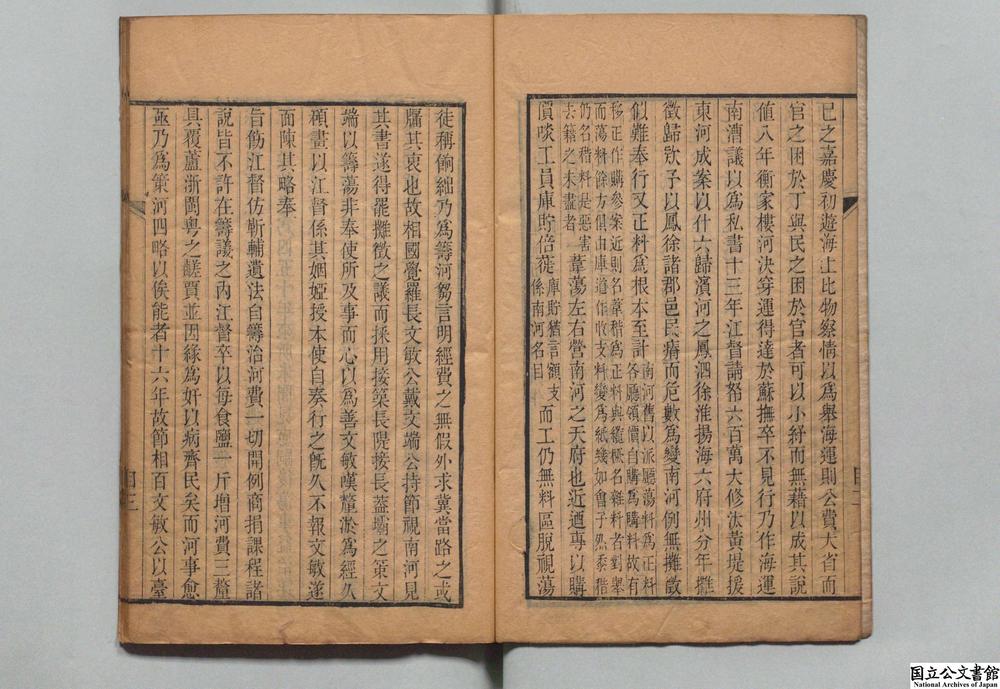 已之嘉慶初遊海上比物察情以爲舉海運則公費大省而
官之困於丁與民之困於官者可以小紓而無藉以成其說
値八年衡家樓河決穿運得達於蘇撫卒不見行乃作海運
南漕議以爲私書十三年江督請帑六百萬大修汰黃堤援
東河成案以什六歸濱河之鳳泗徐淮揚海六府州分年攤
徵歸欵予以鳳徐諸郡邑民瘠而危數爲變南河例無攤徵
似難奉行又正料爲根本至計
南河舊以派廳蕩料爲正料
各廳領價自購爲購料故有
移正作購參案近則名葦稭爲正料與纜橛名雜料者對舉
而蕩料餘方俱由庫道作收支料變爲紙幾如會子然黍稭
仍名稭料是惡害
去籍之未盡者
葦蕩左右營南河之天府也近廼專以購
價啖工員庫貯倍蓰
庫貯猶言額支
係南河名目
而工仍無料區脫視蕩
徒稱餉絀乃爲籌河芻言明經費之無假外求冀當路之或
牖其衷也故相國覺羅長文敏公戴文端公持節視南河見
其書遂得罷攤徵之議而採用接築長隄接長蓋壩之策文
端以籌蕩非奉使所及事而心以爲善文敏嘆釐淤爲經久
碩畫以江督係其姻婭授本使自奏行之旣久不報文敏遂
面陳其略奉
旨飭江督仿靳輔遺法自籌治河費一切開例商捐課程諸
說皆不許在籌議之內江督卒以每食鹽一斤增河費三釐
具覆蘆浙閩粵之鹺賈並因緣爲奸以病齊民矣而河事愈
亟乃爲策河四略以俟能者十六年故節相百文敏公以臺
国立公文書館
National Archives of Japan